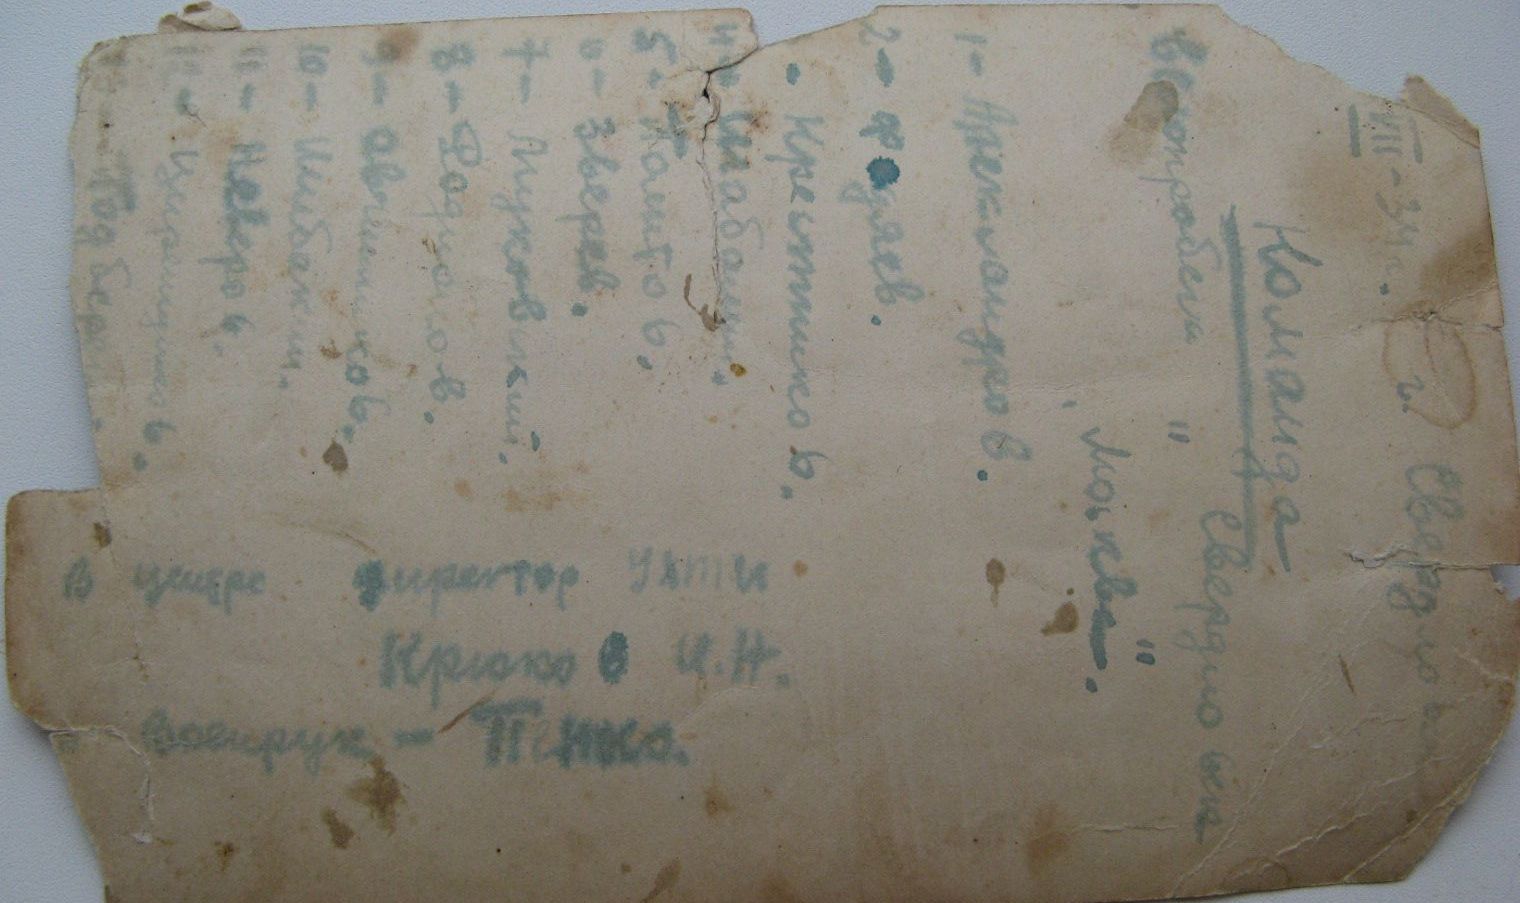 VIII-34 г. г. Свердловск
Команда
Велопробега " Свердловск
Москва".
1- Александров.
2- Фодяев.
- Крестников.
4- Шабалин.
5- Паито в.
6- Зверев.
7- Луковский.
8- Родионов.
9- Овчинников.
10- Шибакин.
11- Неверов.
11-
В центре директор УХТИ
Крюков И.Н.
Военрук -